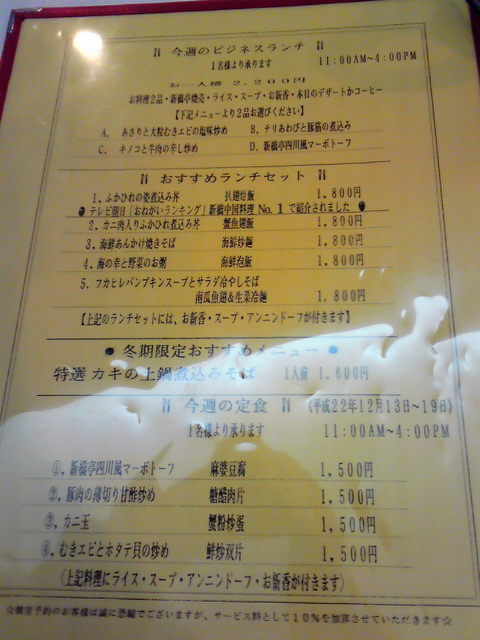 今週のビジネスランチ 11:00AM~4:00PM
1名様より承ります
お一人様 2,200円
お料理2品・新橋亭焼売・ライス・スープ・お新香・本日のデザートかコーヒー
【下記メニューより2品お選びください】
A. あさりと大粒むきエビの塩味炒め B. チリあわびと豚筋の煮込み
C. キノコと牛肉の辛し炒め D. 新橋亭四川風マーボトーフ
おすすめランチセット
1. ふかひれの姿煮込み丼 扒翅烩飯 1,800円
● テレビ朝日「おねがいランキング」新橋中国料理 No.1 で紹介されました ●
2. カニ肉入りふかひれ煮込み丼 蟹魚翅飯 1,800円
3. 海鮮あんかけ焼きそば 海鮮炒麺 1,800円
4. 海の幸と野菜のお粥 海鮮泡飯 1,800円
5. フカヒレパンプキンスープとサラダ冷やしそば
南瓜魚翅&生菜冷麺 1,800円
【上記のランチセットには、お新香・スープ・アンニンドーフが付きます】
● 冬期限定おすすめメニュー ●
特選 カキの土鍋煮込みそば 1人前 1,600円
今週の定食 (平成22年12月13日~19日)
1名様より承ります 11:00AM~4:00PM
①. 新橋亭四川風マーボトーフ 麻婆豆腐 1,500円
②. 豚肉の薄切り甘酢炒め 糖醋肉片 1,500円
③. カニ玉 蟹粉炒蛋 1,500円
④. むきエビとホタテ貝の炒め 鮮炒双片 1,500円
(上記料理にライス・スープ・アンニンドーフ・お新香が付きます)
☆個室予約のお客様は誠に恐縮でございますが、サービス料として10%を加算させていただきます☆